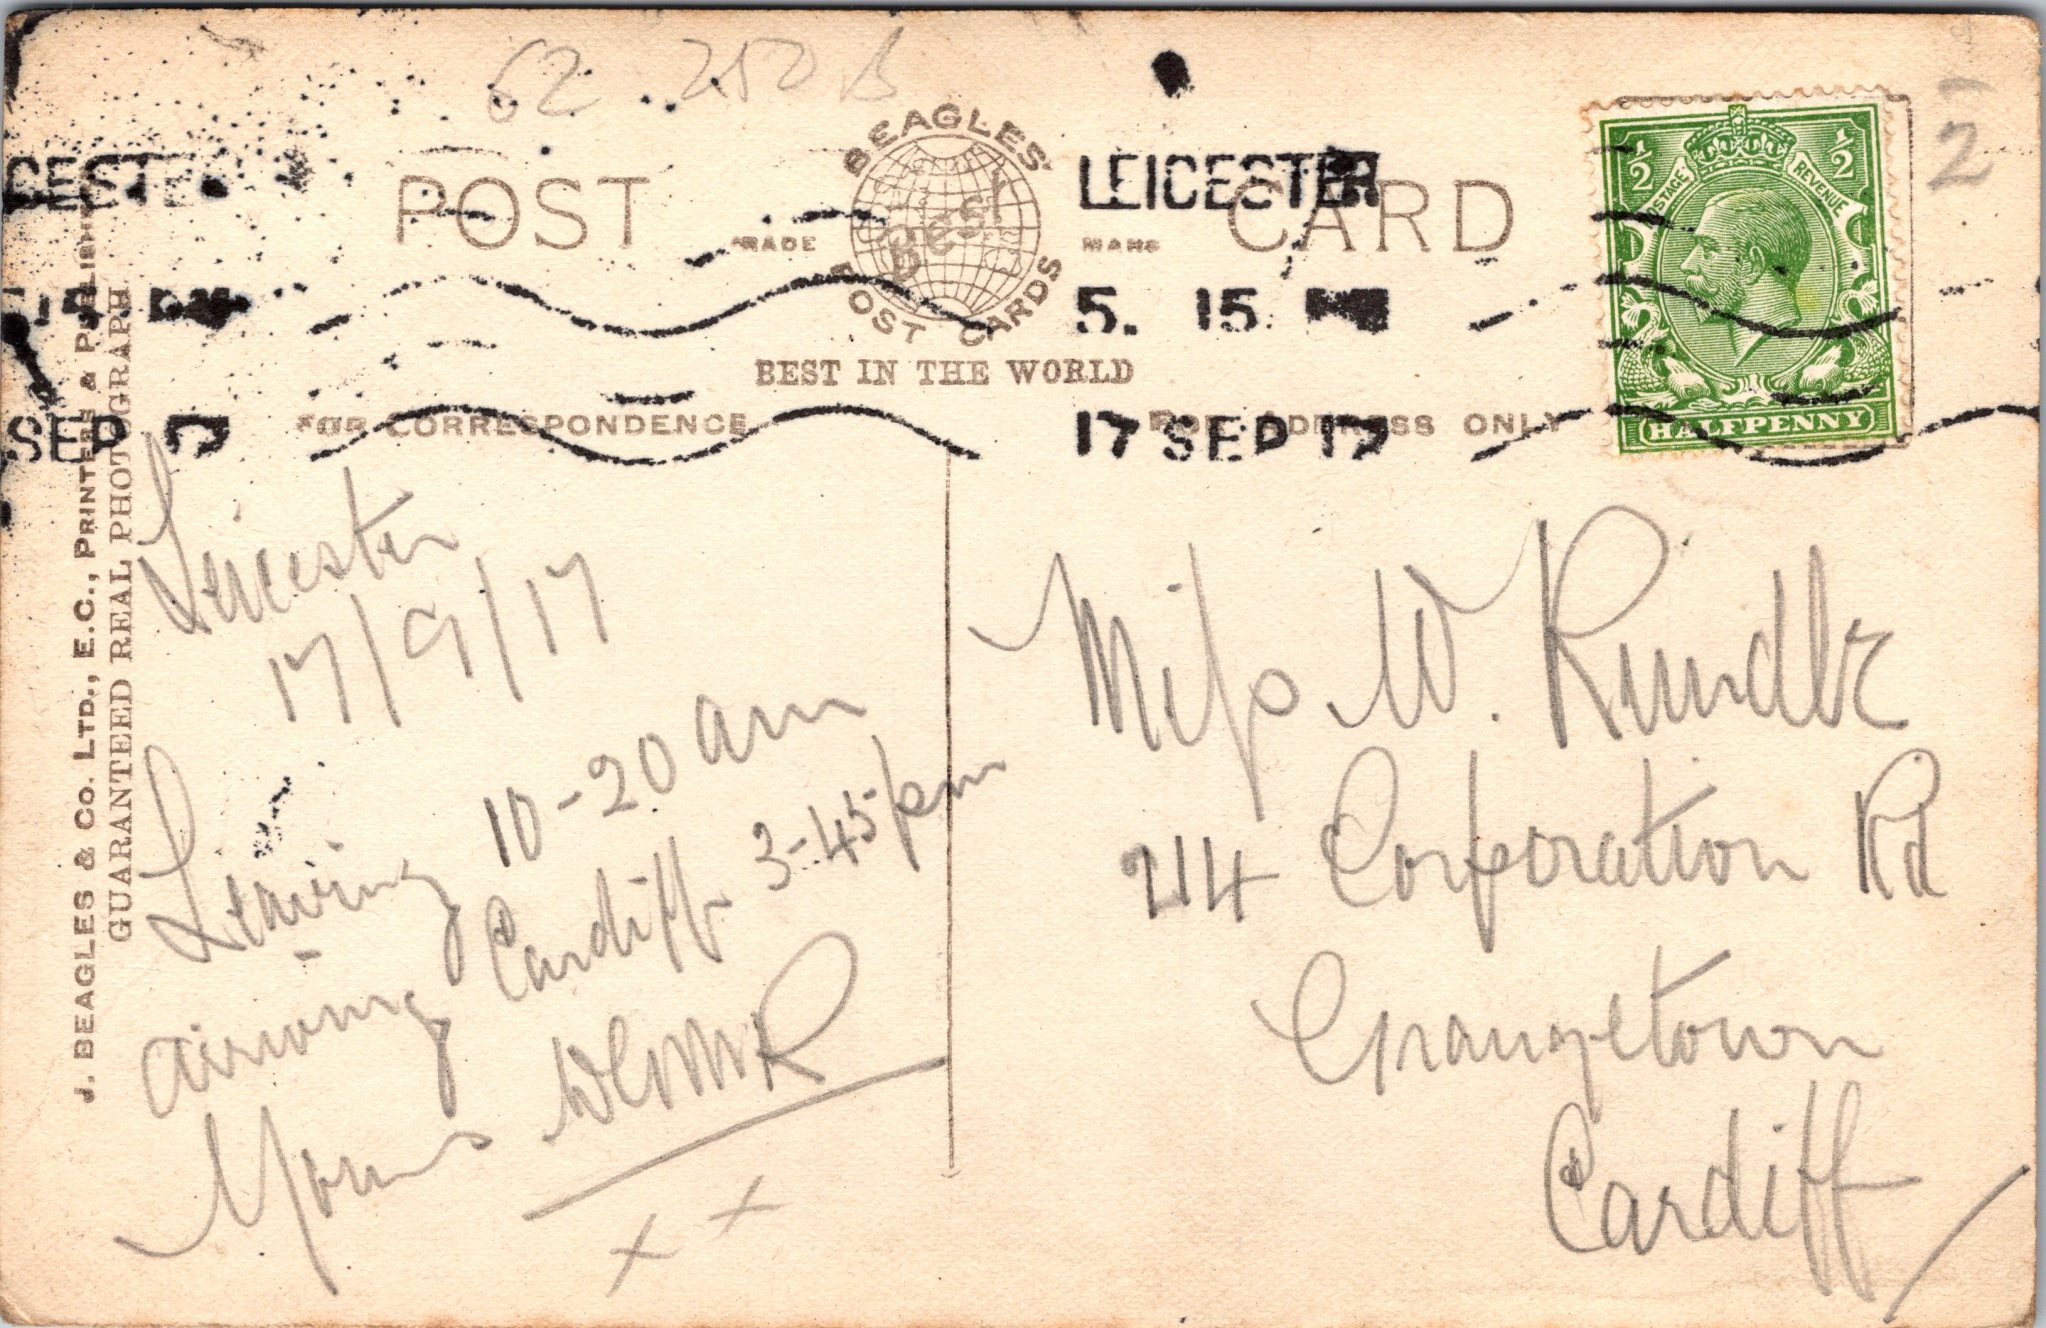 62 250 B
BEAGLES
POST CARDS
POST CARD
TRADE MARK
BEST IN THE WORLD
FOR CORRESPONDENCE
FOR ADDRESS ONLY
LEICESTER
5. 15 PM
17 SEP 17
CESTER
SEP 17
POSTAGE REVENUE
½ ½
HALFPENNY
2
J. BEAGLES & CO. LTD., E.C., PRINTERS & PUBLISH
GUARANTEED REAL PHOTOGRAPH
Leicester
17/9/17
Leaving 10-20 am
Airriving Cardiff 3-45 pm
Yours
x x
Miss W. Rundle
214 Corporation Rd
Grangetown
Cardiff